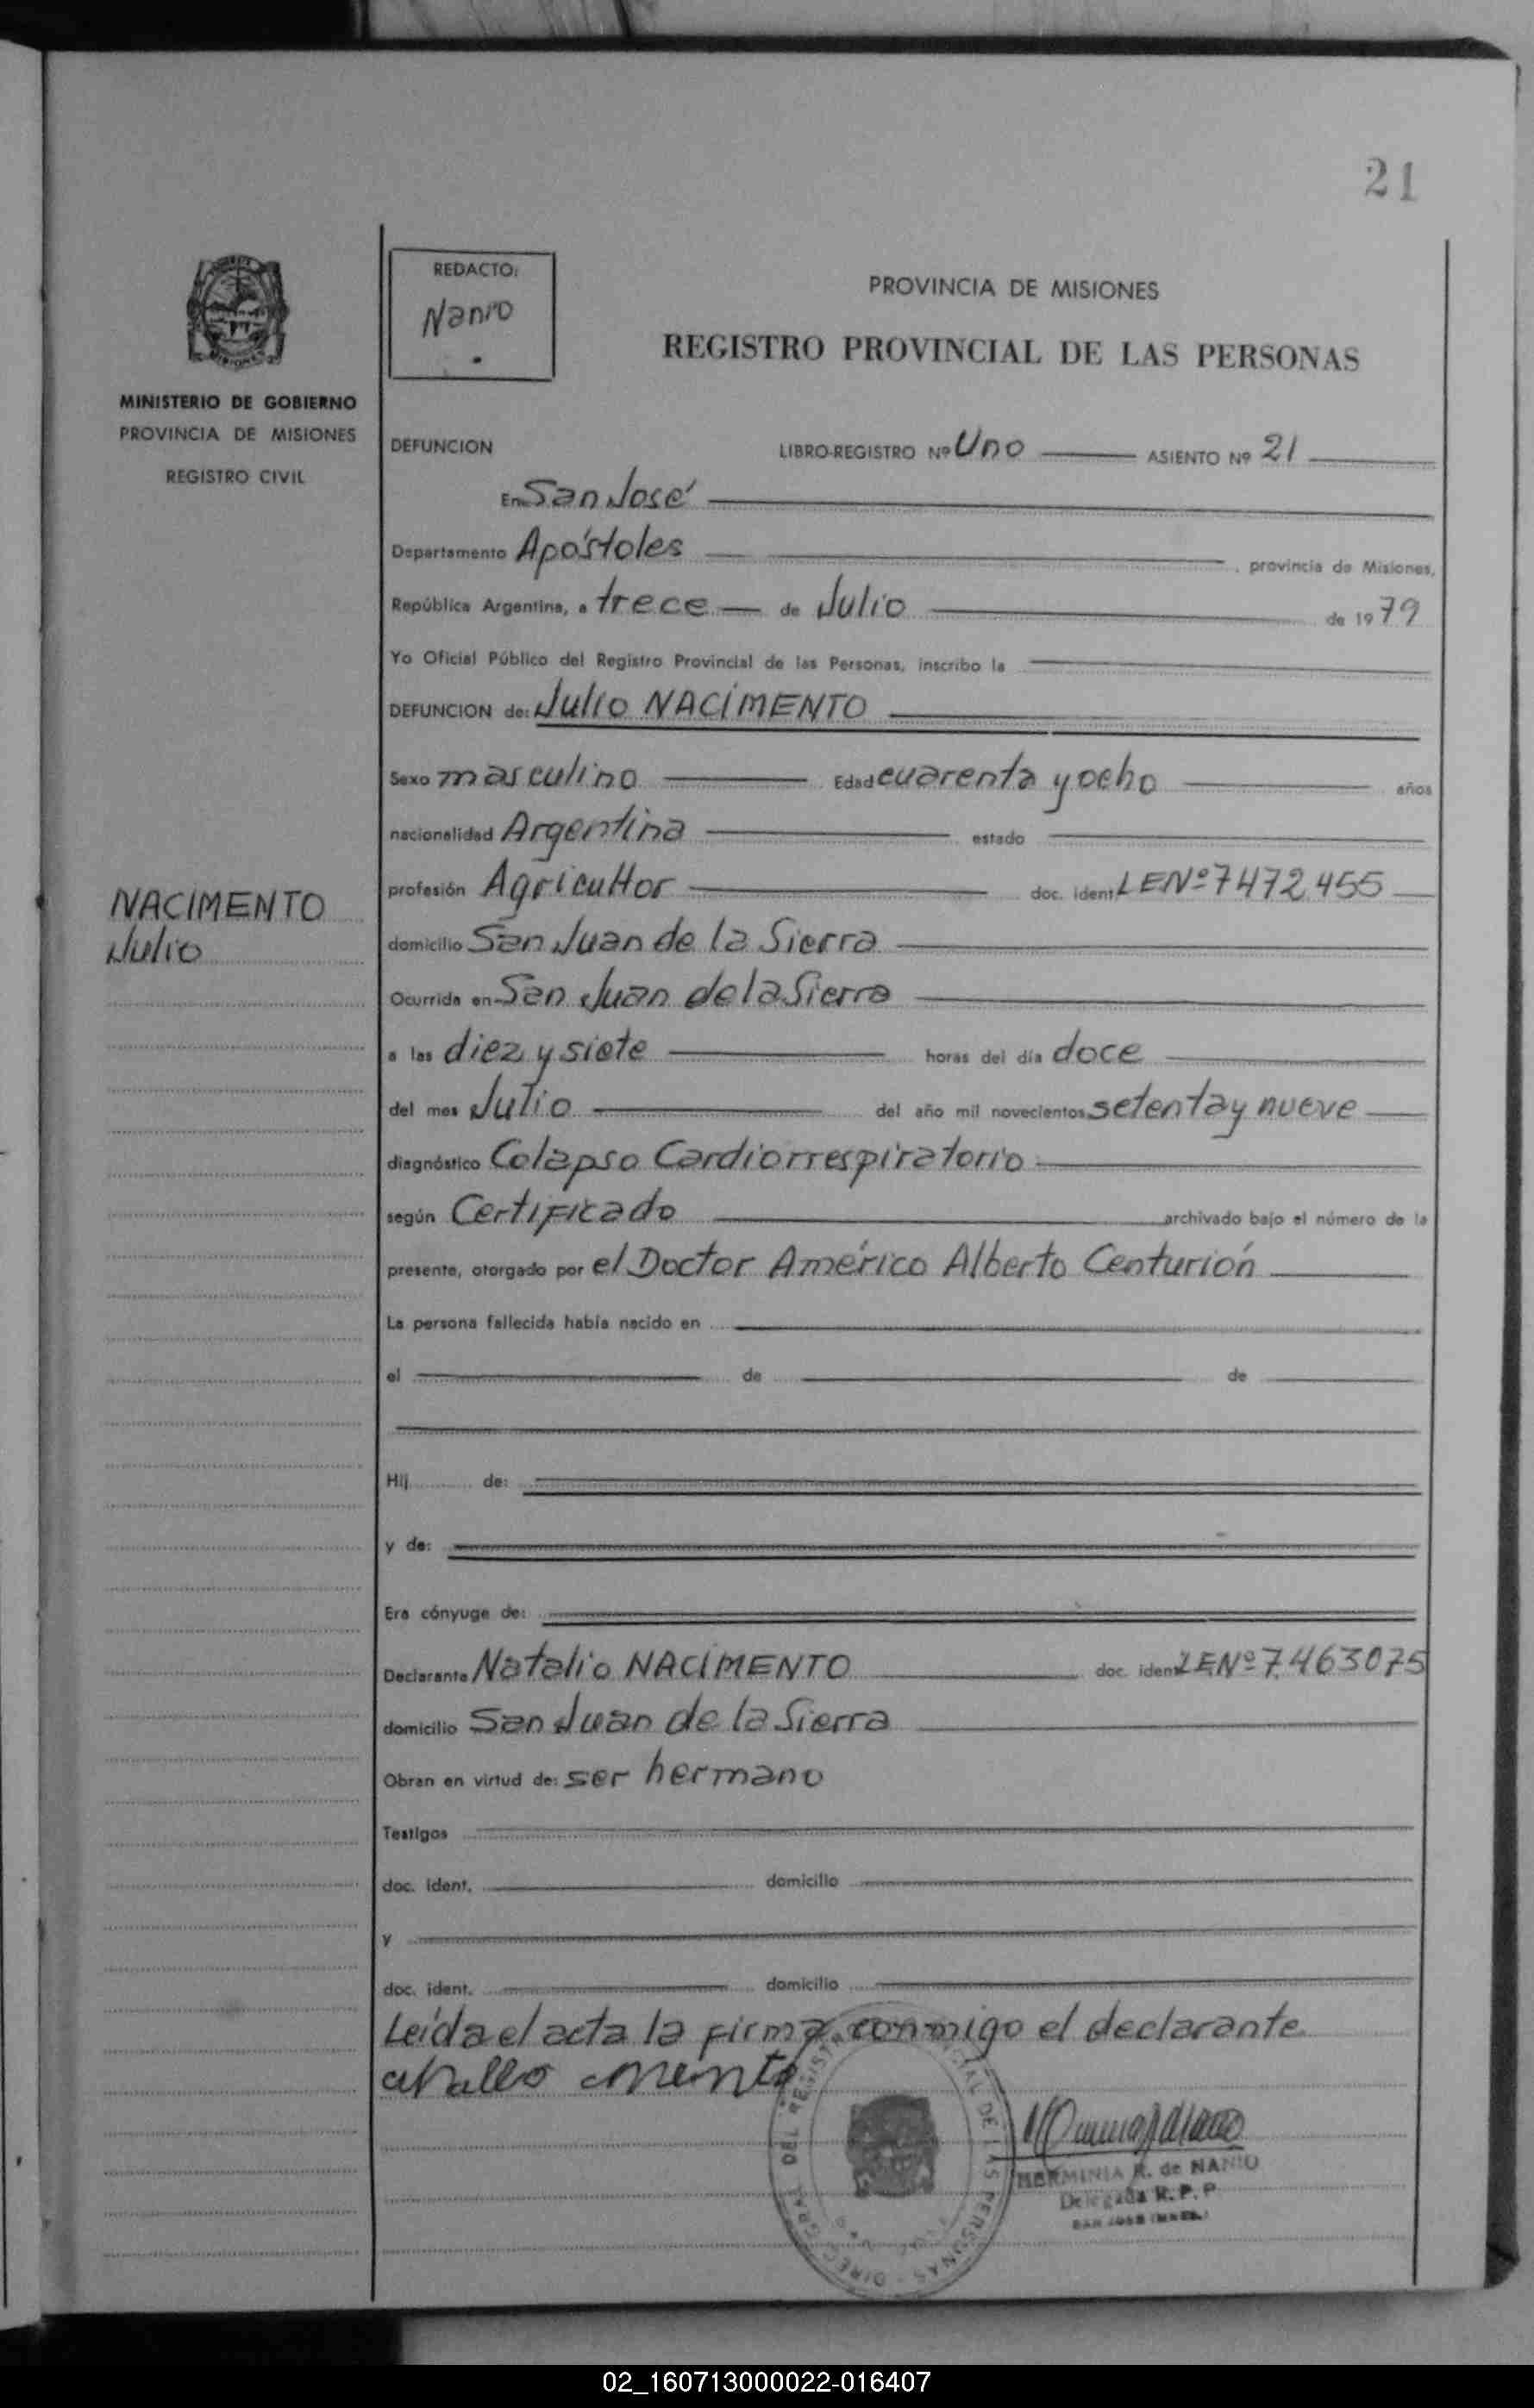 21
REDACTO:
Nanio
PROVINCIA DE MISIONES
REGISTRO PROVINCIAL DE LAS PERSONAS
MINISTERIO DE GOBIERNO
PROVINCIA DE MISIONES
REGISTRO CIVIL
NACIMENTO
Julio
DEFUNCION LIBRO-REGISTRO Nº Uno ASIENTO Nº 21
En San José
Departamento Apóstoles, provincia de Misiones,
República Argentina, a trece de Julio de 1979
Yo Oficial Público del Registro Provincial de las Personas, inscribo la
DEFUNCION de: Julio NACIMENTO
Sexo masculino Edad cuarenta y ocho años
nacionalidad Argentina estado
profesión Agricultor doc. ident. LE Nº 7472.455
domicilio San Juan de la Sierra
Ocurrida en San Juan de la Sierra
a las diez y siete horas del día doce
del mes Julio del año mil novecientos setenta y nueve
diagnóstico Colapso Cardiorrespiratorio
según Certificado archivado bajo el número de la
presente, otorgado por el Doctor Américo Alberto Centurión
La persona fallecida había nacido en
el de de
Hij de:
y de:
Era cónyuge de:
Declarante Natalio NACIMENTO doc. ident. LE Nº 7.463075
domicilio San Juan de la Sierra
Obran en virtud de: ser hermano
Testigos
doc. ident. domicilio
y
doc. ident. domicilio
Leída el acta la firma conmigo el declarante
HERMINIA R. de NANIO
Delegada R. P. P.
SAN JOSE (MNES.)
DIREC. GRAL. DEL REGISTRO PROVINCIAL DE LAS PERSONAS
02_160713000022-016407